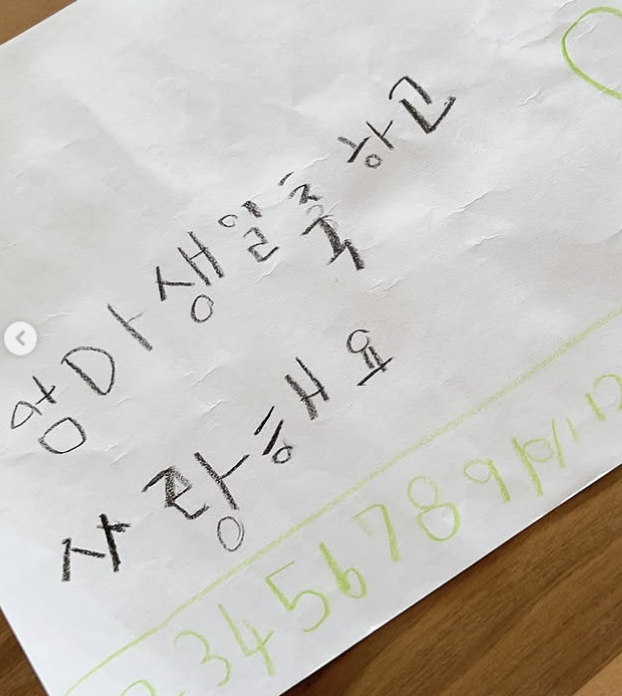 엄마 생일 축 하고
사랑해요
2 3 4 5 6 7 8 9 10 11 12